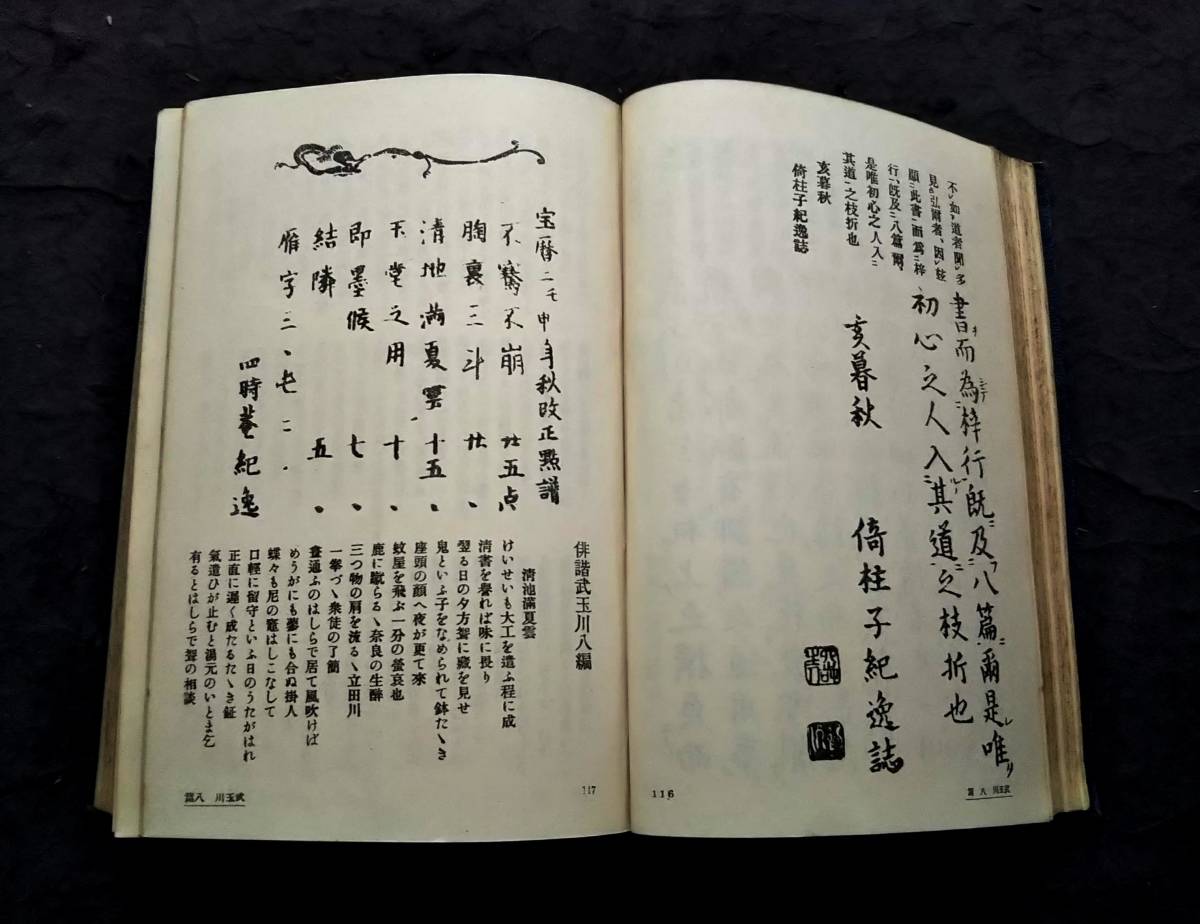 不レ如レ道者聞レ多
見レ弘爾者、因レ玆
顯ニ此書ニ而爲ニ梓
行一、既及ニ八篇ニ爾
是唯初心之人入ニ
其道一之枝折也
亥暮秋
倚柱子紀逸誌
書而為梓行既及八篇爾是唯
初心之人入其道之枝折也
亥暮秋
倚柱子紀逸誌
116
武玉川 八篇
宝暦二壬申年秋改正點譜
不騫不崩 廿五点
胸裏三斗 廿、
清地満夏雲 十五、
玉堂之用 十、
即墨候 七、
結隣 五、
雁字三、 二、
四時菴紀逸
俳諧武玉川八編
淸池滿夏雲
けいせいも大工を遣ふ程に成
淸書を譽れば味に畏り
翌る日の夕方聟に藏を見せ
鬼といふ子をなめられて鉢たゝき
座頭の顏へ夜が更て來
蚊屋を飛ぶ一分の螢哀也
鹿に蹴らるゝ奈良の生醉
三つ物の肩を流るゝ立田川
一擧づゝ衆徒の了簡
晝通ふのはしらで居て風吹けば
めうがにも蓼にも合ぬ掛人
蝶々も尼の竈はしこなして
口輕に留守といふ日のうたがはれ
正直に遲く成たるたゝき鉦
氣遣ひが止むと湯元のいとま乞
有るとはしらで聟の相談
117
武玉川 八篇